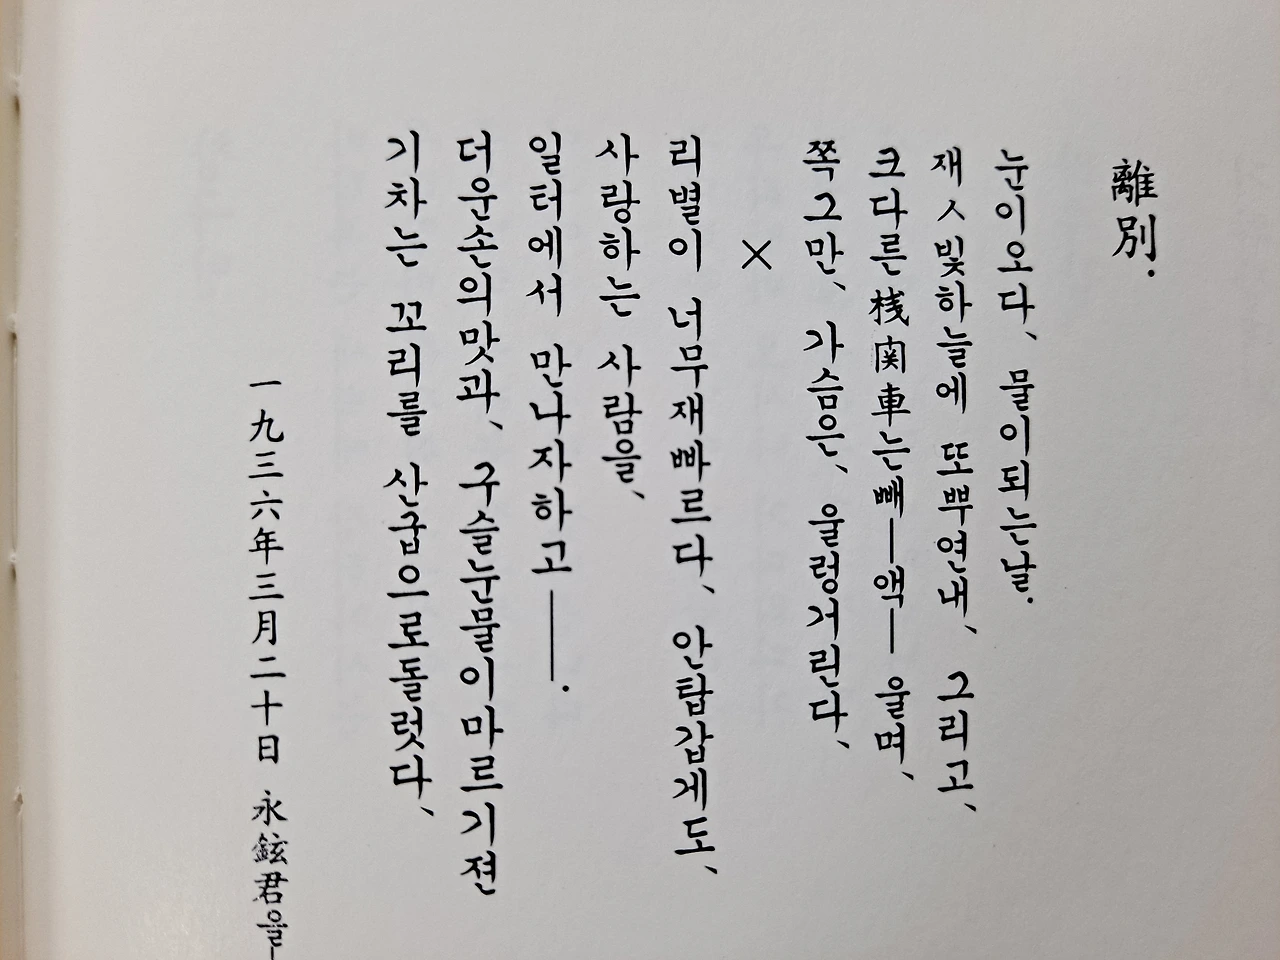 離別.
눈이오다、 물이되는날.
재ㅅ빛하늘에 또뿌연내、 그리고、
크다른 機関車는빼—액— 울며、
쪽그만、 가슴은、 울렁거린다、
×
리별이 너무재빠르다、 안탑갑게도、
사랑하는 사람을、
일터에서 만나자하고——.
더운손의맛과、 구슬눈물이마르기젼
기차는 꼬리를 산굽으로돌럿다、
一九三六年三月二十日 永鉉君을—